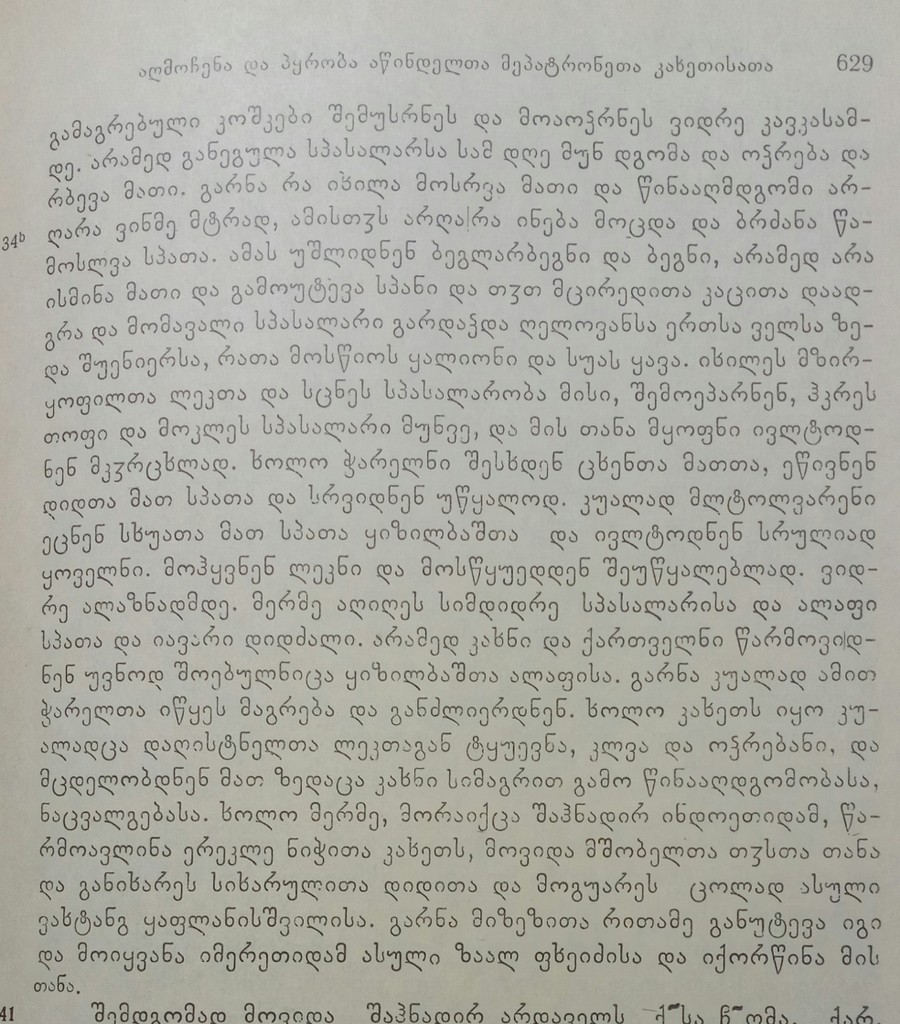 აღმოჩენა და პყრობა აწინდელთა მეპატრონეთა კახეთისათა 629
გამაგრებული კოშკები შემუსრნეს და მოაოჴრნეს ვიდრე კავკასამ-
დე. არამედ განეგულა სპასალარსა სამ დღე მუნ დგომა და ოჴრება და
რბევა მათი. გარნა რა იხილა მოსრვა მათი და წინააღმდგომი არ-
34ᵇ ღარა ვინმე მტრად, ამისთჳს არღარა ინება მოცდა და ბრძანა წა-
მოსლვა სპათა. ამას უშლიდნენ ბეგლარბეგნი და ბეგნი, არამედ არა
ისმინა მათი და გამოუტევა სპანი და თჳთ მცირედითა კაცითა დაად-
გრა და მომავალი სპასალარი გარდაჴდა ღელოვანსა ერთსა ველსა ზე-
და შუენიერსა, რათა მოსწიოს ყალიონი და სუას ყავა. იხილეს მზირ-
ყოფილთა ლეკთა და სცნეს სპასალარობა მისი, შემოეპარნენ, ჰკრეს
თოფი და მოკლეს სპასალარი მუნვე, და მის თანა მყოფნი ივლტოდ-
ნენ მკჳრცხლად. ხოლო ჭარელნი შესხდენ ცხენთა მათთა, ეწივნენ
დიდთა მათ სპათა და სრვიდნენ უწყალოდ. კუალად მლტოლვარენი
ეცნენ სხუათა მათ სპათა ყიზილბაშთა და ივლტოდნენ სრულიად
ყოველნი. მოჰყვნენ ლეკნი და მოსწყუედდენ შეუწყალებლად. ვიდ-
რე ალაზნადმდე. მერმე აღიღეს სიმდიდრე სპასალარისა და ალაფი
სპათა და იავარი დიდძალი. არამედ კახნი და ქართველნი წარმოვიდ-
ნენ უვნოდ შოებულნიცა ყიზილბაშთა ალაფისა. გარნა კუალად ამით
ჭარელთა იწყეს მაგრება და განძლიერდნენ. ხოლო კახეთს იყო კუ-
ალადცა დაღისტნელთა ლეკთაგან ტყუევნა, კლვა და ოჴრებანი, და
მცდელობდნენ მათ ზედაცა კახნი სიმაგრით გამო წინააღდგომობასა,
ნაცვალგებასა. ხოლო მერმე, მორაიქცა შაჰნადირ ინდოეთიდამ, წა-
რმოავლინა ერეკლე ნიჭითა კახეთს, მოვიდა მშობელთა თჳსთა თანა
და განიხარეს სიხარულითა დიდითა და მოგუარეს ცოლად ასული
ვახტანგ ყაფლანისშვილისა. გარნა მიზეზითა რითამე განუტევა იგი
და მოიყვანა იმერეთიდამ ასული ზაალ ფხეიძისა და იქორწინა მის
თანა.
41 შემდგომად მოვიდა შაჰნადირ არდაველს